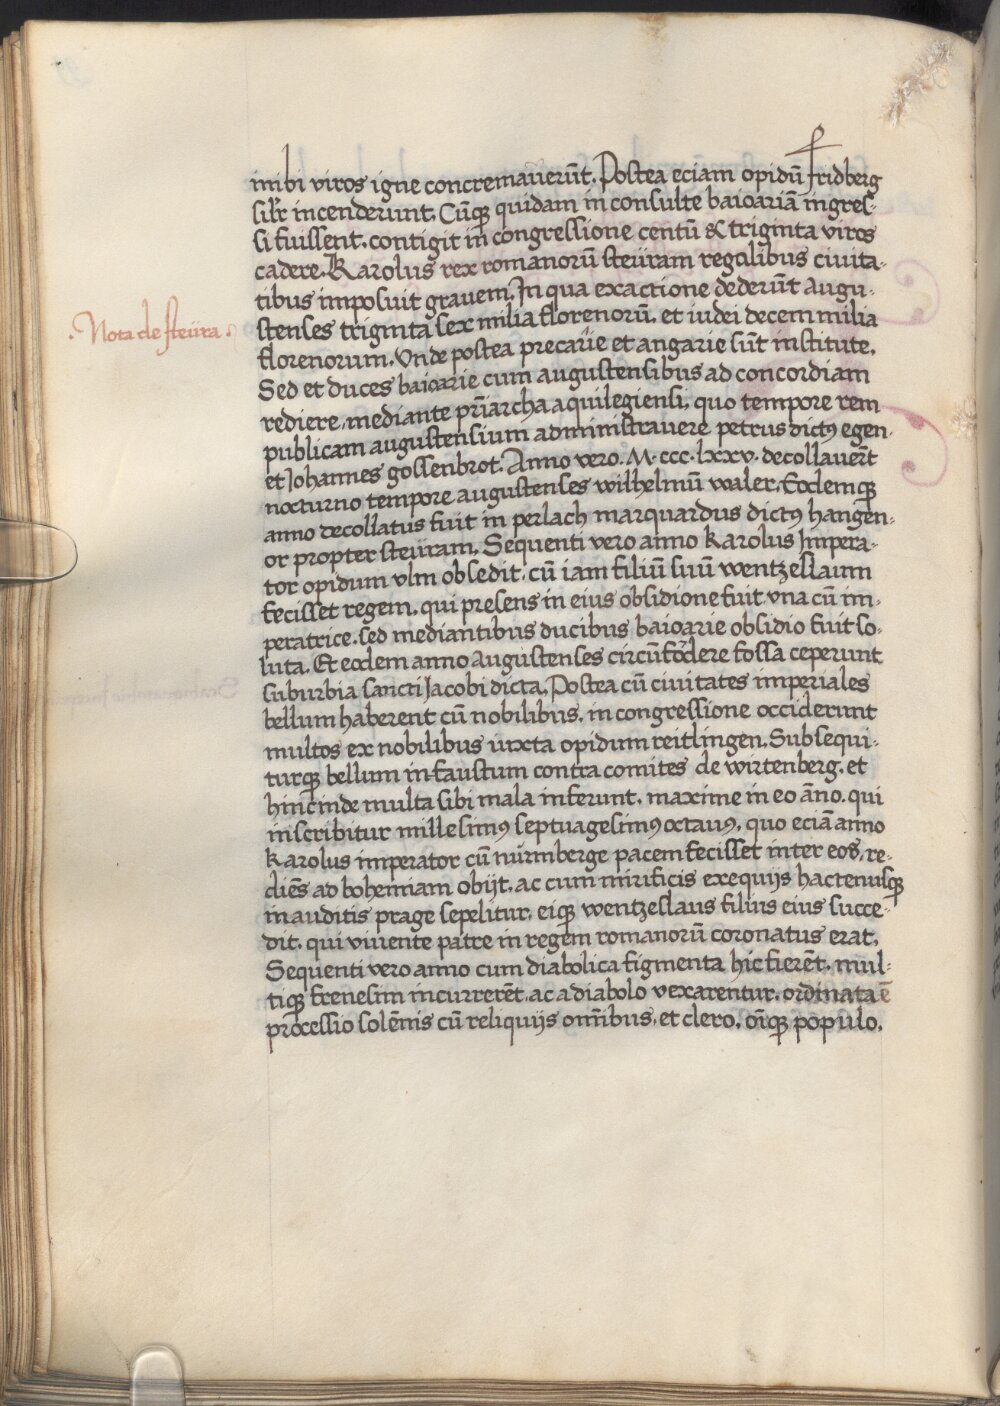 inibi viros igne concremauerūt. Postea eciam opidū fridberg
sibr incenderunt. Cūqꝫ quidam in consulte baioariā ingres-
si fuissent. contigit in congressione centū & triginta viros
cadere. Karolus rex romanorū steüram regalibus ciuita-
tibus imposuit grauem. In qua exactione dederūt augu-
.Nota de steüra.
stenses triginta sex milia florenorū. et iudei decem milia
florenorum. Vnde postea precarie et angarie sūt institute.
Sed et duces baioarie cum augustensibus ad concordiam
rediere, mediante pr̄iarcha aquilegiensi, quo tempore rem
publicam augustensium administrauere petrus dictꝰ egen.
et Johannes gossenbrot. Anno vero. M. ccc. lxxv. decollauer̄t
nocturno tempore augustenses wilhelmū waler. Eodemqꝫ
anno decollatus fuit in perlach marquardus dictꝰ hangen-
or propter steüram. Sequenti vero anno Karolus Impera-
tor opidum vlm obsedit. cū iam filiū suū wentzeslaum
fecisset regem. qui presens in eius obsidione fuit vna cū im-
peratrice. sed mediantibus ducibus baioarie obsidio fuit so-
luta. Et eodem anno augustenses circūfodere fossa ceperunt
suburbia sancti Jacobi dicta. Postea cū ciuitates imperiales
bellum haberent cū nobilibus. in congressione occiderunt
multos ex nobilibus iuxta opidum reitlingen. Subsequi-
turqꝫ bellum infaustum contra comites de wirtenberg. et
hincinde multa sibi mala inferunt. maxime in eo āno. qui
inscribitur millesimꝰ septuagesimꝰ octauꝰ. quo eciā anno
Karolus imperator cū nürmberge pacem fecisset inter eos, re-
diēs ad bohemiam obijt. ac cum mirificis exequijs hactenusqꝫ
inauditis prage sepelitur. eiqꝫ wentzeslaus filius eius succe-
dit. qui viuente patre in regem romanorū coronatus erat.
Sequenti vero anno cum diabolica figmenta hic fierēt. mul-
tiqꝫ frenesim incurrerēt. ac a diabolo vexarentur. ordinata ē
processio solēnis cū reliquijs omībus. et clero. oīqꝫ populo.